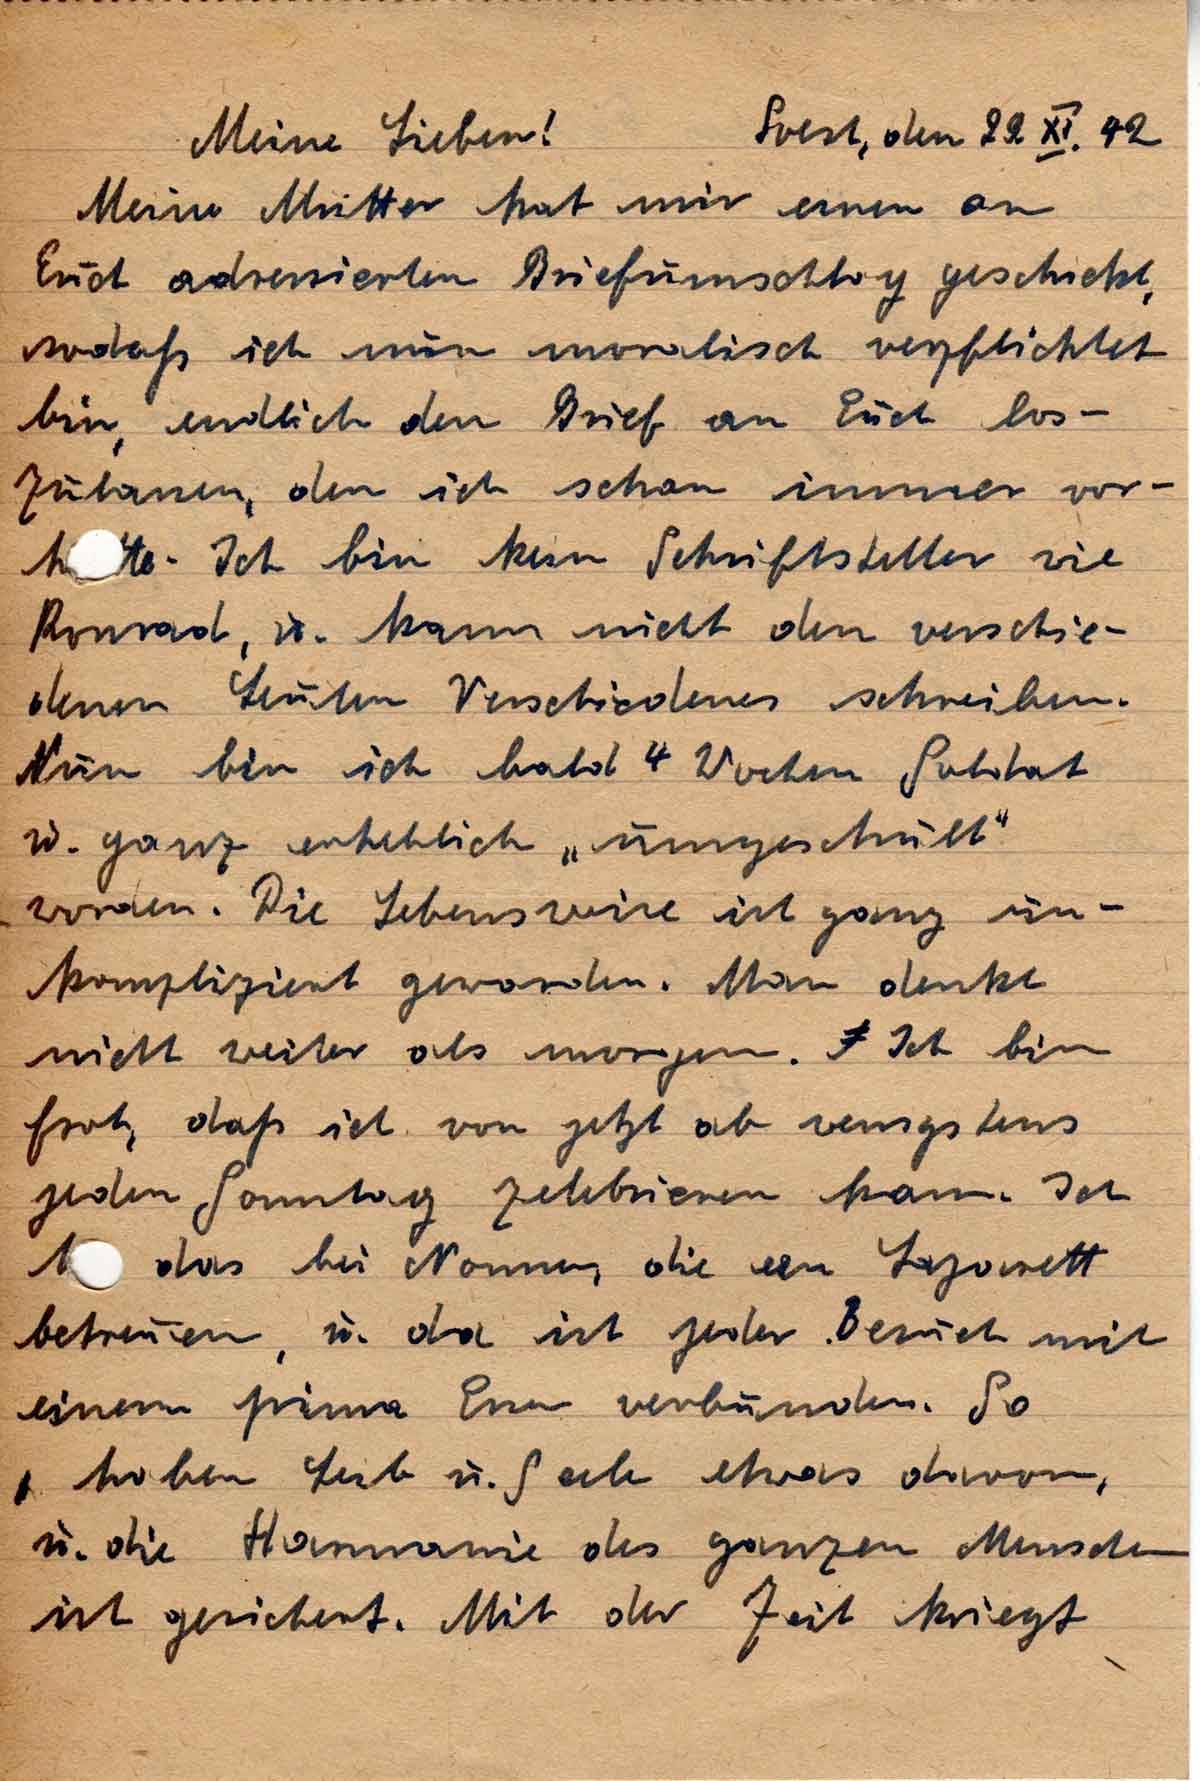 Meine Lieben! Soest, den 22 XI. 42
Meine Mutter hat mir einen an
Euch adressierten Briefumschlag geschickt,
sodaß ich nun moralisch verpflichtet
bin, endlich den Brief an Euch los-
zulassen, den ich schon immer vor-
hatte. Ich bin kein Schriftsteller wie
Konrad, u. kann nicht den verschie-
denen Leuten Verschiedenes schreiben.
Nun bin ich bald 4 Wochen Soldat
u. ganz erheblich „umgeschult“
worden. Die Lebensweise ist ganz un-
kompliziert geworden. Man denkt
nicht weiter als morgen. Ich bin
froh, daß ich von jetzt ab wenigstens
jeden Sonntag zelebrieren kann. Ich
das bei Nonnen, die ein Lazarett
betreuen, u. da ist jeder Besuch mit
einem prima Essen verbunden. So
haben Leib u. Seele etwas davon,
u. die Harmonie des ganzen Menschen
ist gesichert. Mit der Zeit kriegt